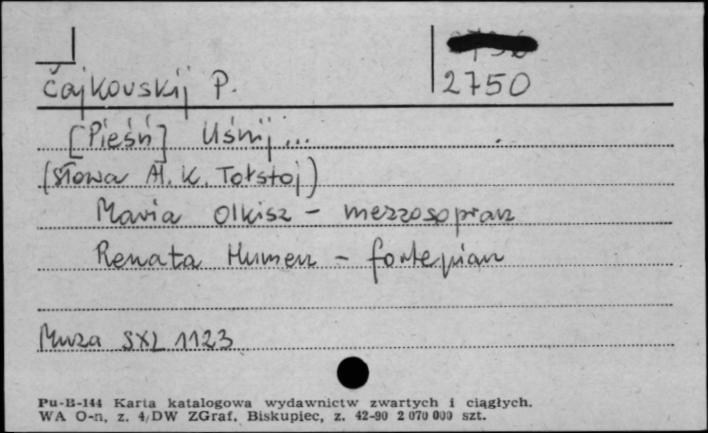 Čajkovskij P.
2750
[Pieśń] Uśnij...
(słowa Al. K. Tołstoj)
Maria Olkisz - mezzosopran
Renata Humen - fortepian
Muza SXL 1123
Pu-B-144 Karta katalogowa wydawnictw zwartych i ciągłych.
WA O-n, z. 4/DW ZGraf. Biskupiec, z. 42-90 2 070 000 szt.